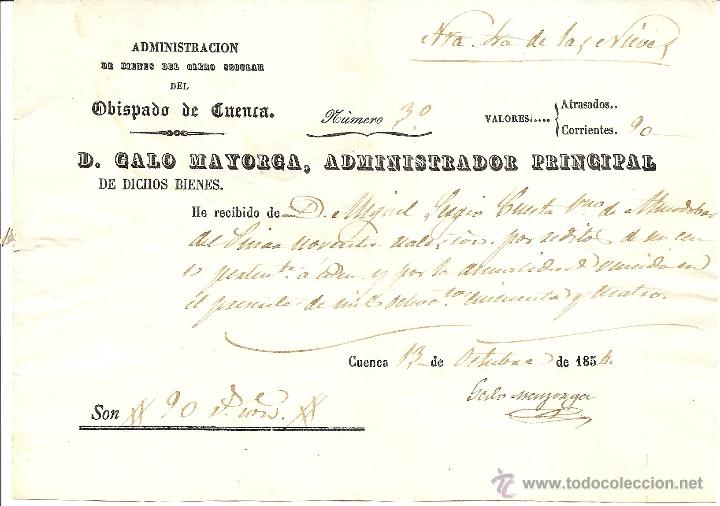 ADMINISTRACION
DE BIENES DEL CLERO SECULAR
DEL
Obispado de Cuenca.
Ntra. Sra de las Nieves
Número 30
VALORES:.... Atrasados..
Corrientes. 90
D. GALO MAYORGA, ADMINISTRADOR PRINCIPAL
DE DICHOS BIENES.
He recibido de D. Miguel Cuesta de
del noventa por reditos de un
y por la anualidad vencida en
el presente de mil cincuenta y cuatro.
Cuenca 13 de Octubre de 1854.
Galo Mayorga
Son 90 rs. von.
www.todocoleccion.net